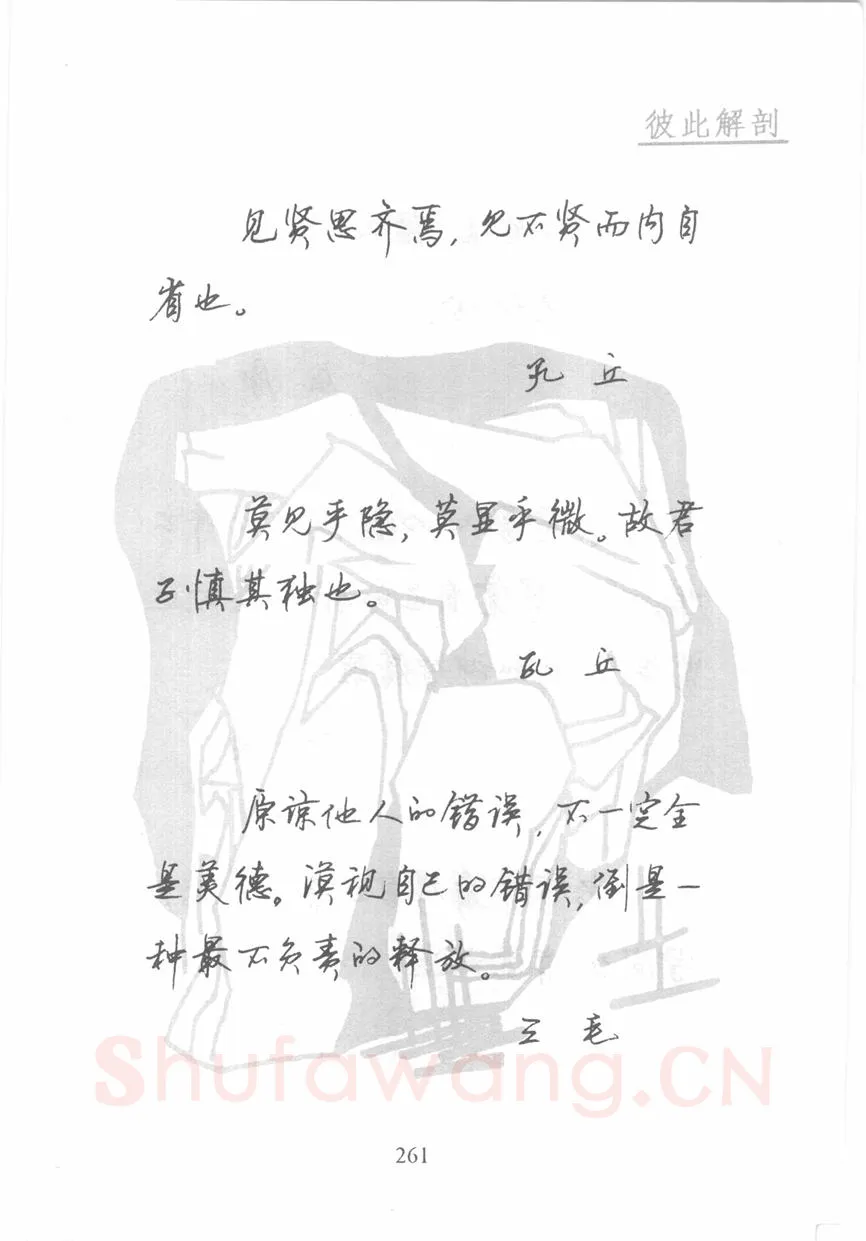 彼此解剖
见贤思齐焉，见不贤而内自
省也。
孔 丘
莫见乎隐，莫显乎微。故君
子慎其独也。
孔 丘
原谅他人的错误，不一定全
是美德。漠视自己的错误，倒是一
种最不负责的释放。
三 毛
Shufawang.CN
261